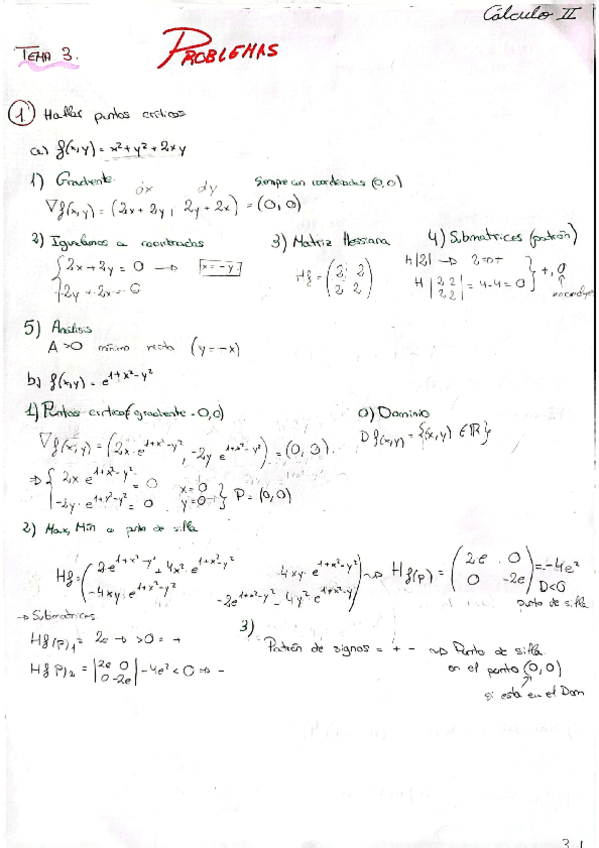 Cálculo II
TEMA 3. PROBLEMAS
1 Hallar puntos críticos
a) f(x,y) = x²+y²+2xy
1) Gradiente Siempre con coordenadas (0,0)
dx dy
∇f(x,y) = (2x+2y, 2y+2x) = (0,0)
2) Igualamos a coordenadas 3) Matriz Hessiana 4) Submatrices (patrón)
{2x+2y = 0 → x=-y Hf = (2 2 H|2| → 2=>+ } +,0
2y+2x=0 2 2) H |2 2
2 2| = 4-4=0
5) Análisis
A>0 mínimo recta (y=-x)
b) f(x,y) = e^{1+x²-y²}
1) Puntos críticos (gradiente = 0,0) 0) Dominio
∇f(x,y) = (2x·e^{1+x²-y²}, -2y e^{1+x²-y²}) = (0,0). D f(x,y) = {(x,y) ∈ℝ}
⇒ {2x e^{1+x²-y²} = 0 x=0 } P = (0,0)
-2y·e^{1+x²-y²} = 0 y=0
2) Max, Min o punto de silla
Hf = (2·e^{1+x²-y²} + 4x²·e^{1+x²-y²} 4xy·e^{1+x²-y²} → Hf(P) = (2e 0 = -4e²
-4xy·e^{1+x²-y²} -2e^{1+x²-y²} - 4y²·e^{1+x²-y²}) 0 -2e) D<0
punto de silla
→ Submatrices
Hf(P)₁ = 2e → >0 = +
Hf(P)₂ = |2e 0
0 -2e| -4e² < 0 ⇒ -
3)
Patrón de signos = + - → Punto de silla
en el punto (0,0)
si esta en el Dom
3.1